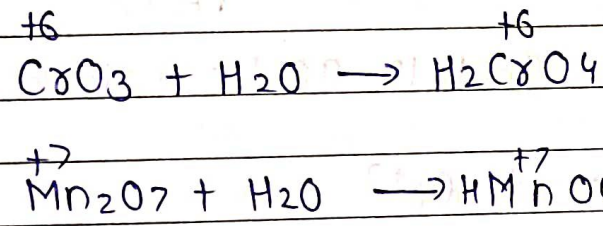 +6 +6
CrO3 + H2O → H2CrO4
+7 +7
Mn2O7 + H2O → HMnO